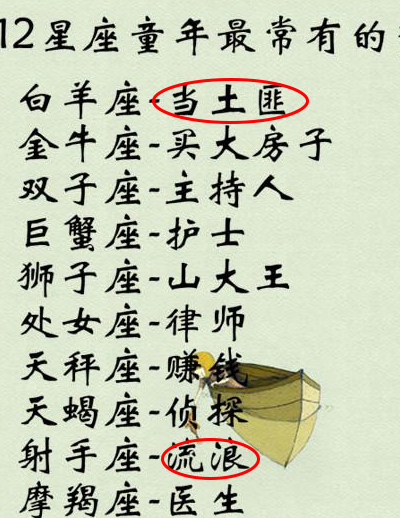 12星座童年最常有的
白羊座-当土匪
金牛座-买大房子
双子座-主持人
巨蟹座-护士
狮子座-山大王
处女座-律师
天秤座-赚钱
天蝎座-侦探
射手座-流浪
摩羯座-医生